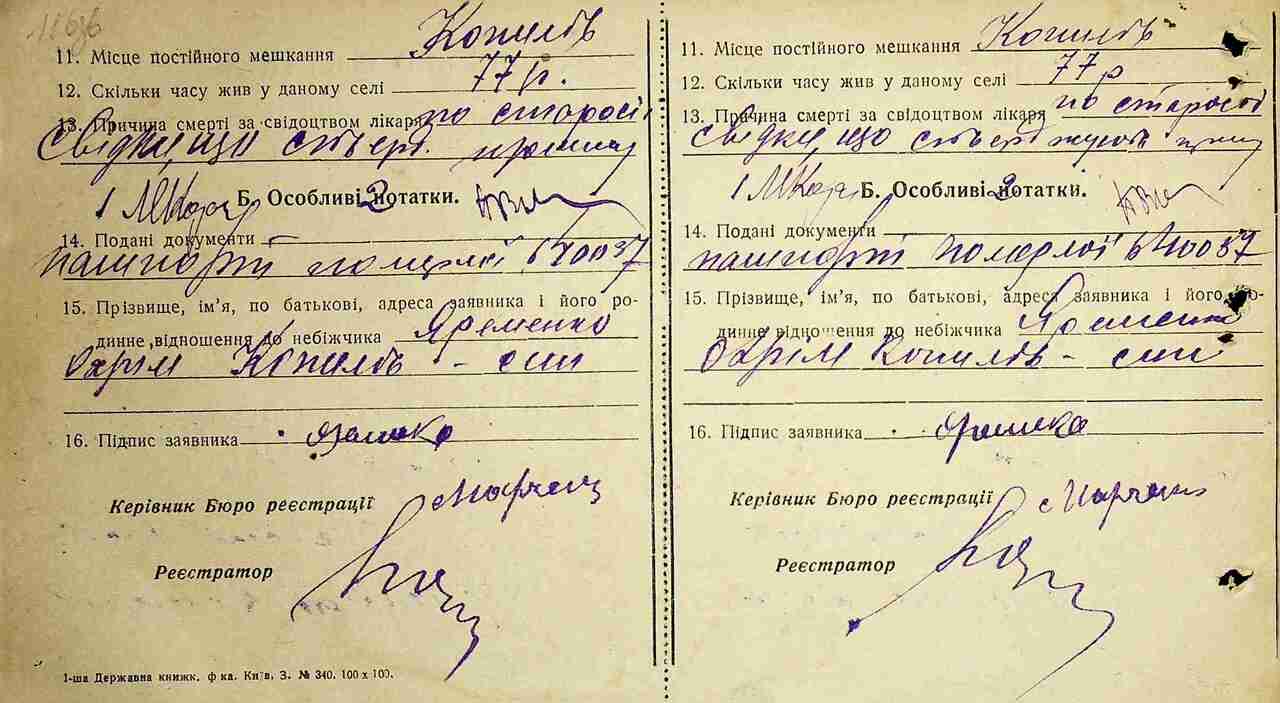 11. Місце постійного мешкання Копилів
12. Скільки часу жив у даному селі 77 р.
13. Причина смерті за свідоцтвом лікаря по старості
Свідки, що ствер.
Б. Особливі нотатки.
1 2
14. Подані документи
пашпорт померлої 640037
15. Прізвище, ім'я, по батькові, адреса заявника і його ро-
динне відношення до небіжчика Яременко
Охрім Копилів - син
16. Підпис заявника
Керівник Бюро реєстрації
Реєстратор
1-ша Державна книжк. ф ка. Київ, З. № 340. 100 x 100.
11. Місце постійного мешкання Копилів
12. Скільки часу жив у даному селі 77 р
13. Причина смерті за свідоцтвом лікаря по старості
Свідки, що
Б. Особливі нотатки.
1 2
14. Подані документи
пашпорт померлої 640037
15. Прізвище, ім'я, по батькові, адреса заявника і його ро-
динне відношення до небіжчика Яременко
Охрім Копилів - син
16. Підпис заявника
Керівник Бюро реєстрації
Реєстратор